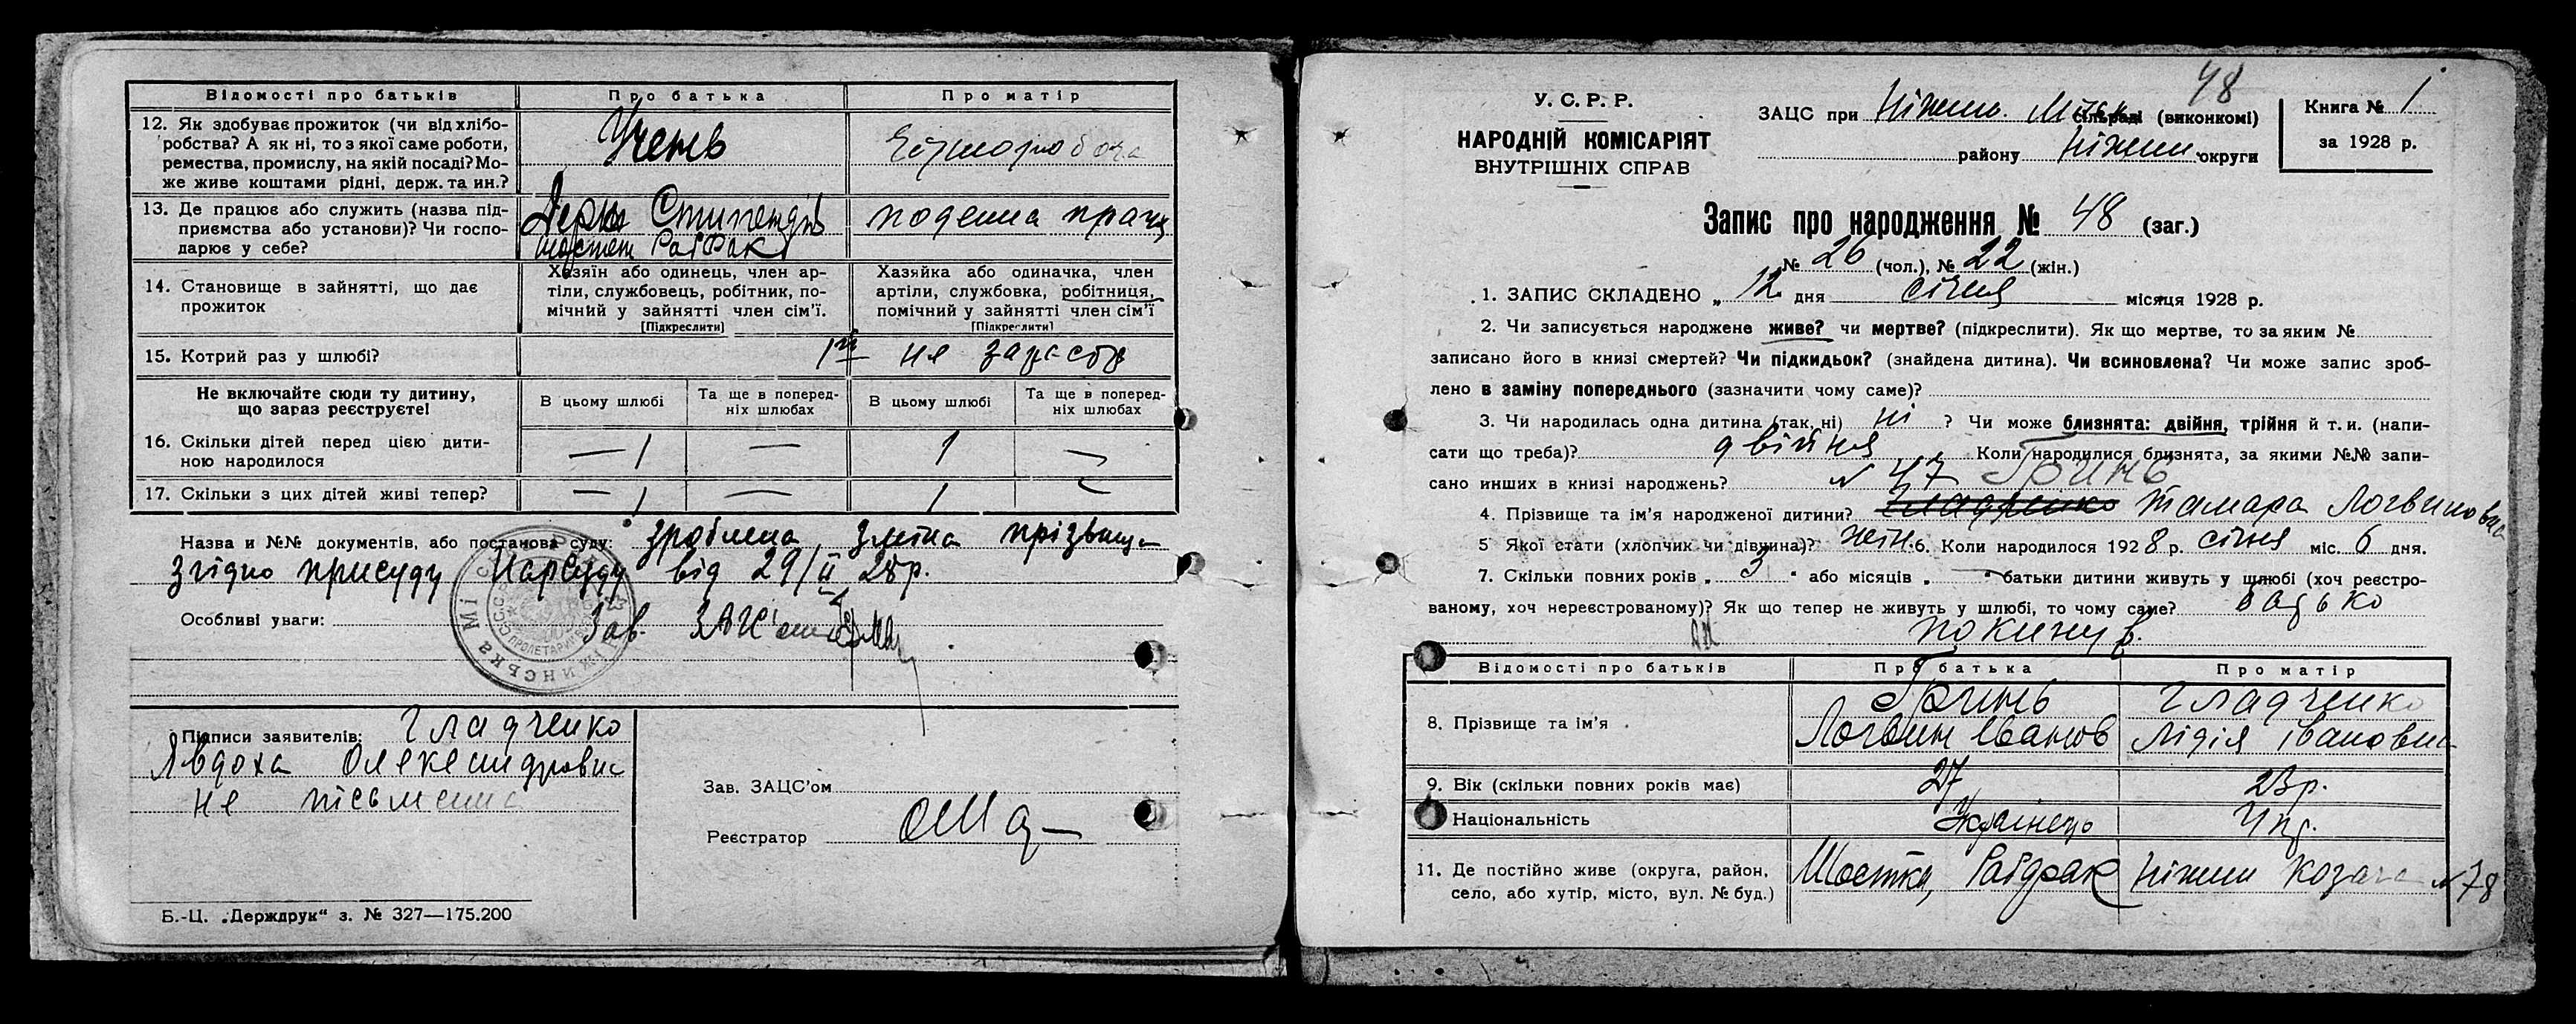 Відомості про батьків Про батька Про матір
12. Як здобуває прожиток (чи від хлібо-
робства? А як ні, то з якої саме роботи,
ремества, промислу, на якій посаді? Мо-
же живе коштами рідні, держ. та ин.?
Учень
13. Де працює або служить (назва під-
приємства або установи)? Чи госпо-
дарює у себе?
Держ Стипендія
РабФак
поденна праця
14. Становище в зайнятті, що дає
прожиток
Хазяїн або одинець, член ар-
тіли, службовець, робітник, по-
мічний у зайнятті член сім'ї.
[Підкреслити]
Хазяйка або одиначка, член
артіли, службовка, робітниця,
помічний у зайнятті член сім'ї
[Підкреслити]
15. Котрий раз у шлюбі? 1й не
Не включайте сюди ту дитину,
що зараз реєструєте!
В цьому шлюбі
Та ще в поперед-
ніх шлюбах
В цьому шлюбі
Та ще в поперед-
ніх шлюбах
16. Скільки дітей перед цією дити-
ною народилося
— 1 — 1 —
17. Скільки з цих дітей живі тепер? — 1 — 1 —
Назва и №№ документів, або постанова суду: зроблена зміна прізвища
згідно присуду Нарсуду від 29/II 28р.
Особливі уваги:
Зав. ЗАГС'ом
Підписи заявителів: Гладченко
Явдоха Олександровна
не письменна
Зав. ЗАЦС'ом
Реєстратор
Б.-Ц. „Держдрук“ з. № 327—175.200
48
У. С. Р. Р.
НАРОДНІЙ КОМІСАРІЯТ
ВНУТРІШНІХ СПРАВ
ЗАЦС при Ніжин. Міськ сільраді (виконкомі)
району Ніжин. округи
Книга № 1
за 1928 р.
Запис про народження № 48 (заг.)
№ 26 (чол.), № 22 (жін.)
1. ЗАПИС СКЛАДЕНО „ 12 дня січня місяця 1928 р.
2. Чи записується народжене живе? чи мертве? (підкреслити). Як що мертве, то за яким №
записано його в книзі смертей? Чи підкидьок? (знайдена дитина). Чи всиновлена? Чи може запис зроб-
лено в заміну попереднього (зазначити чому саме)?
3. Чи народилась одна дитина (так, ні) ні ? Чи може близнята: двійня, трійня й т. и. (напи-
сати що треба)? двійня Коли народилися близнята, за якими №№ запи-
сано инших в книзі народжень? № 47 Гринь
4. Прізвище та ім'я народженої дитини? Гладченко Тамара Логвиновна
5 Якої стати (хлопчик чи дівчина)? жін. 6. Коли народилося 1928 р. січня міс. 6 дня.
7. Скільки повних років „ 3 “ або місяців „ — “ батьки дитини живуть у шлюбі (хоч реєстро-
ваному, хоч нереєстрованому)? Як що тепер не живуть у шлюбі, то чому саме? батько
покинув.
Відомості про батьків Про батька Про матір
8. Прізвище та ім'я
Гринь
Логвин Іванов
Гладченко
Лідія Івановна
9. Вік (скільки повних років має) 27 23 р.
Національність Українець Укр.
11. Де постійно живе (округа, район,
село, або хутір, місто, вул. № буд.)
Шостка, Рабфак
Ніжин Козача № 78